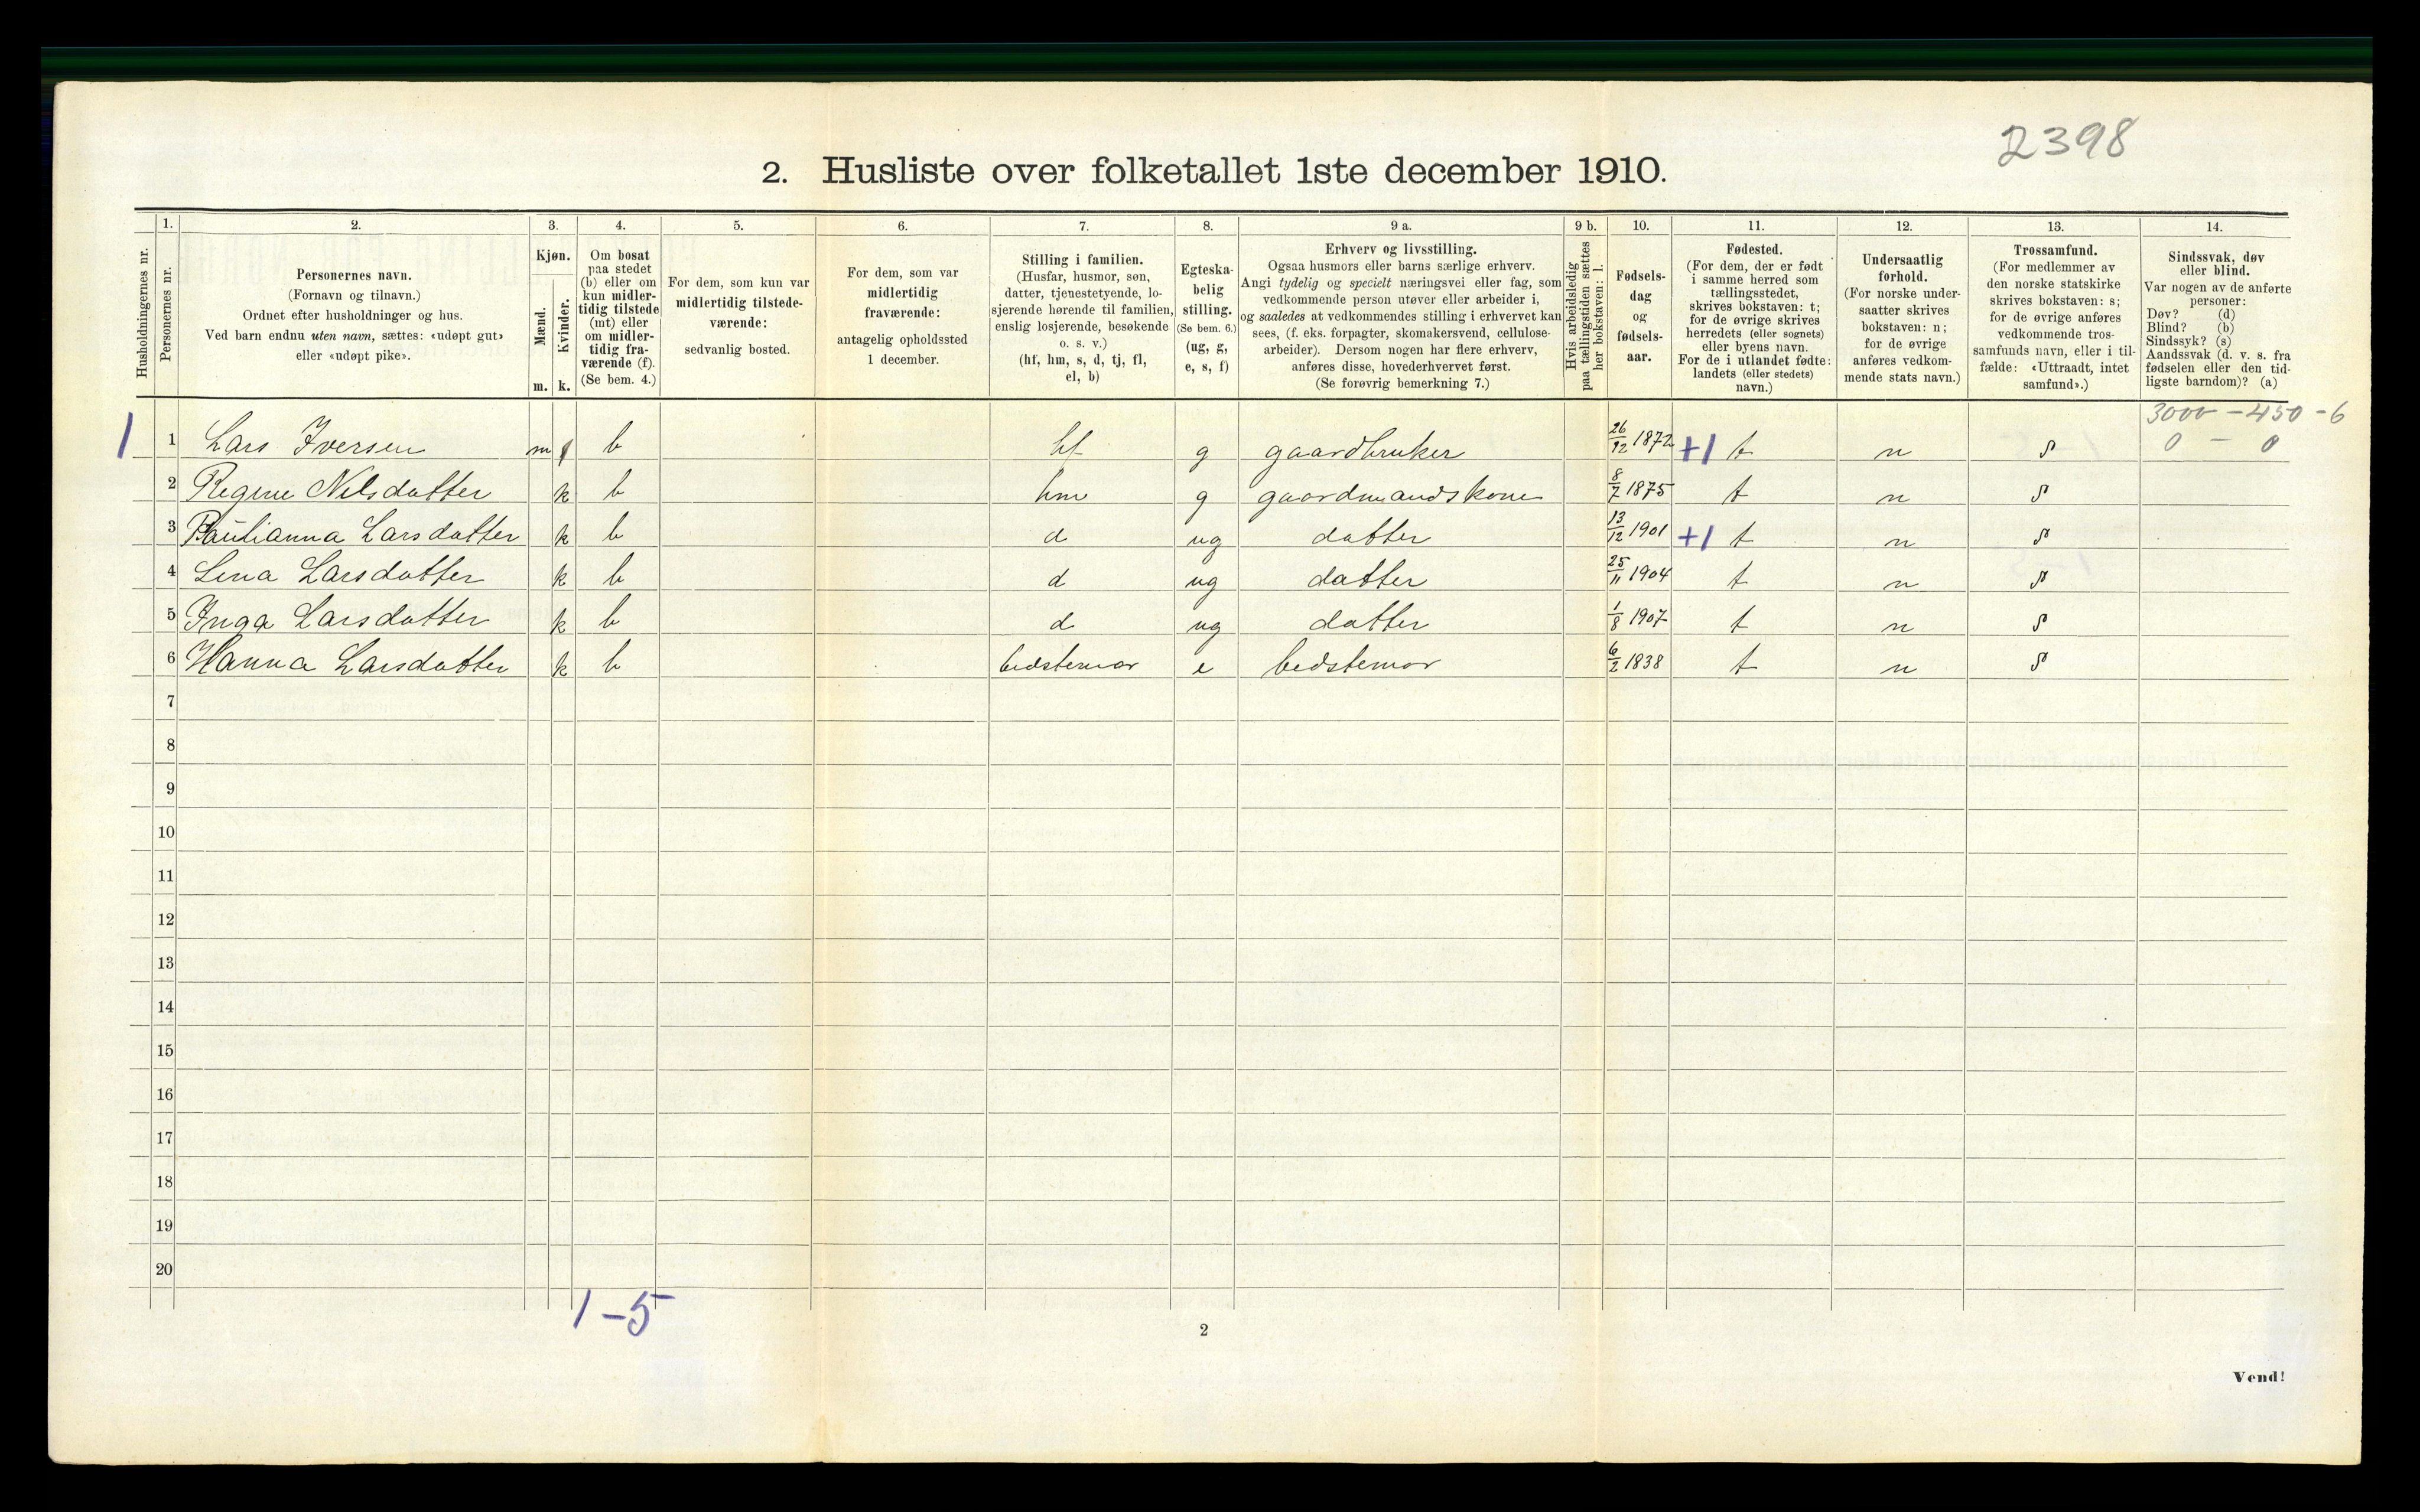 2398
2. Husliste over folketallet 1ste december 1910.
Husholdningernes nr.
1. Personernes nr.
2. Personernes navn.
(Fornavn og tilnavn.)
Ordnet efter husholdninger og hus.
Ved barn endnu uten navn, sættes: «udøpt gut»
eller «udøpt pike».
3. Kjøn.
Mænd. m.
Kvinder. k.
4. Om bosat
paa stedet
(b) eller om
kun midler-
tidig tilstede
(mt) eller
om midler-
tidig fra-
værende (f).
(Se bem. 4.)
5. For dem, som kun var
midlertidig tilstede-
værende:
sedvanlig bosted.
6. For dem, som var
midlertidig
fraværende:
antagelig opholdssted
1 december.
7. Stilling i familien.
(Husfar, husmor, søn,
datter, tjenestetyende, lo-
sjerende hørende til familien,
enslig losjerende, besøkende
o. s. v.)
(hf, hm, s, d, tj, fl,
el, b)
8. Egteska-
belig
stilling.
(Se bem. 6.)
(ug, g,
e, s, f)
9 a. Erhverv og livsstilling.
Ogsaa husmors eller barns særlige erhverv.
Angi tydelig og specielt næringsvei eller fag, som
vedkommende person utøver eller arbeider i,
og saaledes at vedkommendes stilling i erhvervet kan
sees, (f. eks. forpagter, skomakersvend, cellulose-
arbeider). Dersom nogen har flere erhverv,
anføres disse, hovederhvervet først.
(Se forøvrig bemerkning 7.)
9 b. Hvis arbeidsledig
paa tællingstiden sættes
her bokstaven: l.
10. Fødsels-
dag
og
fødsels-
aar.
11. Fødested.
(For dem, der er født
i samme herred som
tællingsstedet,
skrives bokstaven: t;
for de øvrige skrives
herredets (eller sognets)
eller byens navn.
For de i utlandet fødte:
landets (eller stedets)
navn.)
12. Undersaatlig
forhold.
(For norske under-
saatter skrives
bokstaven: n;
for de øvrige
anføres vedkom-
mende stats navn.)
13. Trossamfund.
(For medlemmer av
den norske statskirke
skrives bokstaven: s;
for de øvrige anføres
vedkommende tros-
samfunds navn, eller i til-
fælde: «Uttraadt, intet
samfund».)
14. Sindssvak, døv
eller blind.
Var nogen av de anførte
personer:
Døv? (d)
Blind? (b)
Sindssyk? (s)
Aandssvak (d. v. s. fra
fødselen eller den tid-
ligste barndom)? (a)
3000 - 450 - 6
0 - 0
1 1 Lars Iversen m b hf g gaardbruker 26/12 1872 +1 t n s
2 Regine Nilsdatter k b hm g gaardmandskone 8/7 1875 t n s
3 Paulianna Larsdatter k b d ug datter 13/12 1901 +1 t n s
4 Lina Larsdatter k b d ug datter 25/11 1904 t n s
5 Inga Larsdatter k b d ug datter 1/8 1907 t n s
6 Hanna Larsdatter k b bedstemor e bedstemor 6/2 1838 t n s
7
8
9
10
11
12
13
14
15
16
17
18
19
20
1-5
2
Vend!